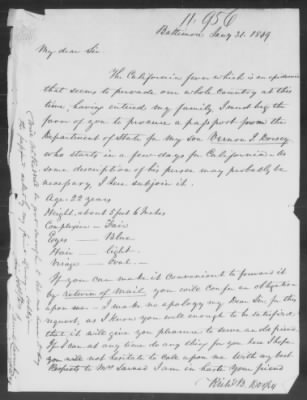 11.956
Baltimore Jany 31. 1849
My dear Sir.
The California fever which is an epidemic
that seems to pervade our whole Country at this
time, having entered my family, I must beg the
favor of you to procure a passport from the
Department of State for my son Vernon Dorsey
who starts in a few days for California. As
some description of his person may probably be
necessary, I here subjoin it.
Age. 22 years
Height. about 5 feet 6 Inches
Complexion - Fair
Eyes — Blue
Hair — Light
Visage — Oval.
If you can make it convenient to forward it
by return of mail, you will confer an obligation
upon me. I make no apology my Dear Sir for this
request, as I know you well enough to be satisfied
that it will give you pleasure to serve an old friend.
If I can at any time do any thing for you here I hope
you will not hesitate to call upon me. With my best
Respects to Mrs I am in haste Your friend
B. Dorsey